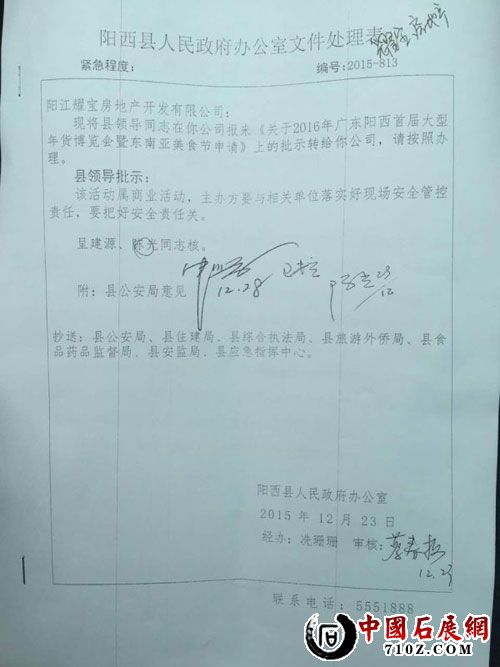 耀宝房地产
阳西县人民政府办公室文件处理表
紧急程度: 编号:2015-813
阳江耀宝房地产开发有限公司:
现将县领导同志在你公司报来《关于2016年广东阳西首届大型
年货博览会暨东南亚美食节申请》上的批示转给你公司,请按照办
理。
县领导批示:
该活动属商业活动,主办方要与相关单位落实好现场安全管控
责任,要把好安全责任关。
呈建源、陈光同志核。
12.28
23
12
附:县公安局意见
抄送:县公安局、县住建局、县综合执法局、县旅游外侨局、县食
品药品监督局、县安监局、县应急指挥中心。
阳西县人民政府办公室
2015 年 12 月 23 日
经办:冼珊珊 审核:
12.23
联系电话:5551888
中國石展網
710Z.COM